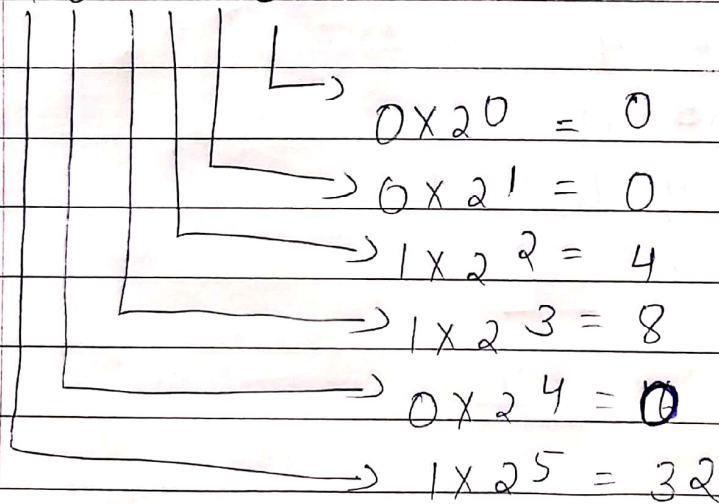 0 × 2⁰ = 0
0 × 2¹ = 0
1 × 2² = 4
1 × 2³ = 8
0 × 2⁴ = 0
1 × 2⁵ = 32